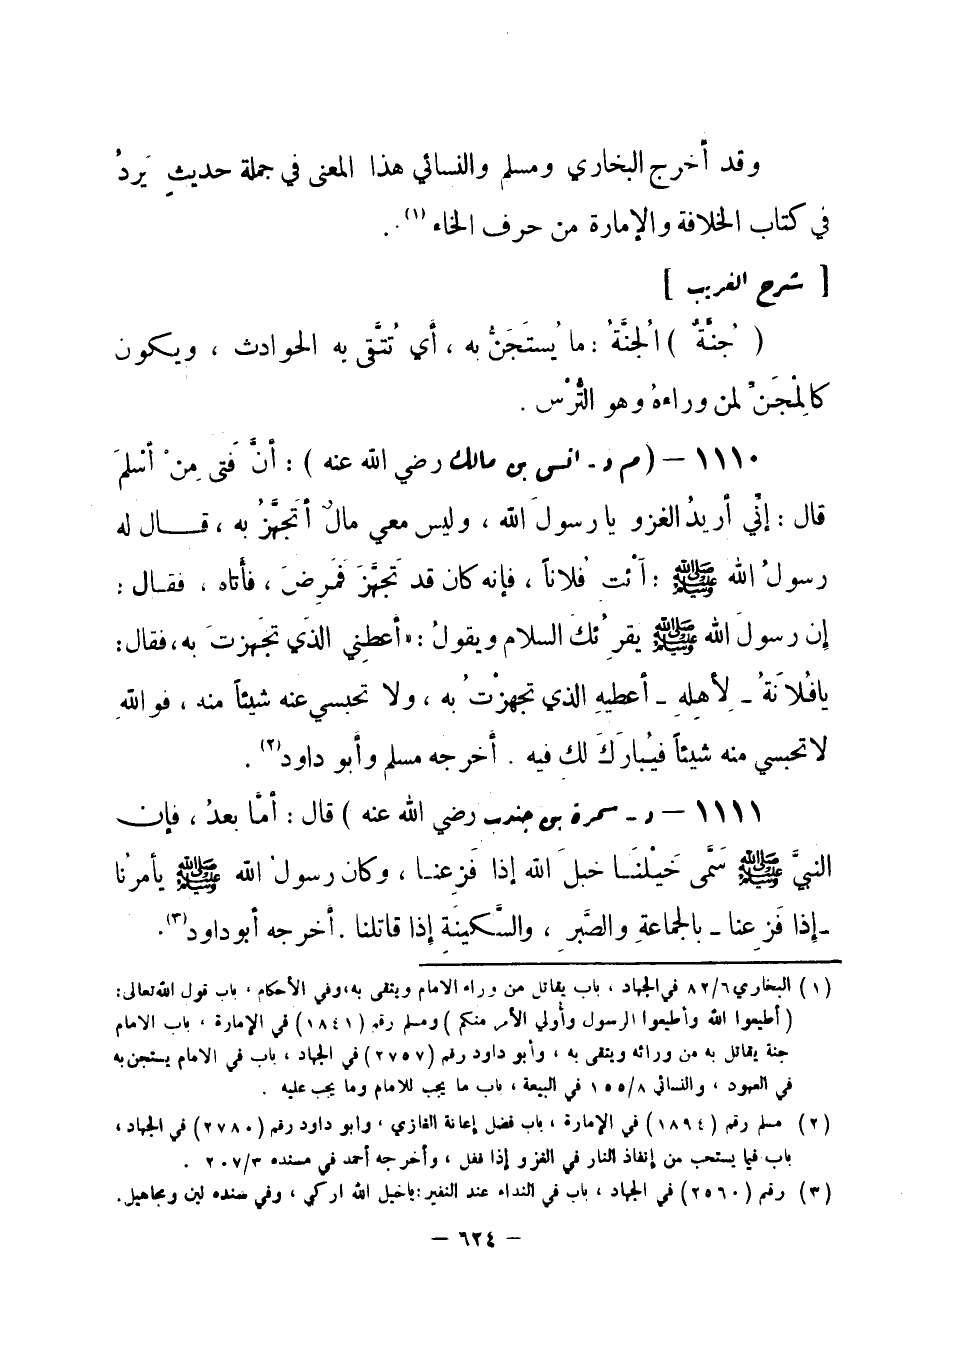 وقد أخرج البخاري ومسلم والنسائي هذا المعنى في جملة حديثٍ يَردُ
في كتاب الخلافة والإمارة من حرف الخاء (١).
[ شرح الغريب ]
( جُنَّةٌ ) الْجنَّةُ : ما يُستَجَنُّ به ، أي تُتَّقى به الحوادث ، ويكون
كالِمْجَنّ لمن وراءهُ وهو التُّرْس .
١١١٠ – (م د ـ أنس بن مالك رضي الله عنه ) : أنَّ فَتى مِنْ أسْلمَ
قال : إنِّي أريدُ الغزو يا رسولَ الله ، وليس معي مالٌ أتَجَهَّزُ به ، قـــال له
رسولُ الله ﷺ : اْئْت فُلاناً ، فإنه كان قد تَجهَّزَ فَمَرِضَ ، فأتاه ، فقـال :
إن رسولَ الله ﷺ يقرِئكَ السلام ويقولُ : «أعطِني الذَي تجَهزتَ به ، فقال:
يا فُلاَنَةُ ـ لأهِلهِ ـ أعطيهِ الذي تجهزْتُ به ، ولا تحبسي عنه شيئاً منه ، فو اللهِ
لا تحبسي منه شيئاً فيُبارَكَ لك فيه . أخرجه مسلم وأبو داود (٢) .
١١١١ – ( د ـ سمرة بن جندب رضي الله عنه ) قال : أمَّا بعدُ ، فإن
النبيَّ ﷺ سَمَّى خَيْلنَــا خيلَ الله إذا فَزِعنــا ، وكان رسولُ الله ﷺ يأمرُنا
ـ إذا فَزِعنا ـ بالجماعةِ والصَّبرِ ، والسَّكينَةِ إذا قاتلنا . أخرجه أبو داود (٣).
(١) البخاري ٨٢/٦ في الجهاد ، باب يقاتل من وراء الامام ويتقى به ، وفي الأحكام ، باب قول الله تعالى:
( أطيعوا الله وأطيعوا الرسول وأُولي الأمر منكم ) ومسلم رقم (١٨٤١) في الإمارة ، باب الامام
جنة يقاتل به من ورائه ويتقى به ، وأبو داود رقم (٢٧٥٧) في الجهاد ، باب في الامام يستجن به
في العهود ، والنسائي ١٥٥/٨ في البيعة ، باب ما يجب للامام وما يجب عليه .
(٢) مسلم رقم (١٨٩٤) في الإمارة ، باب فضل إعانة الغازي ، وابو داود رقم (٢٧٨٠) في الجهاد ،
باب فيما يستحب من إنفاذ النار في الغزو إذا قفل ، وأخرجه أحمد في مسنده ٢٠٧/٣ .
(٣) رقم (٢٥٦٠) في الجهاد ، باب في النداء عند النفير : ياخيل الله اركبي ، وفي سنده لين ومجاهيل.
– ٦٢٤ –